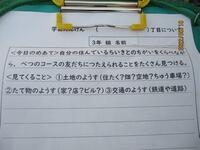 学
(　　　)丁目につい
3年　組　名前
<今日のめあて>自分の住んでいるちいきとのちがいをくらべながら、べつのコースの友だちにつたえられることをたくさん見つける。
<見てくること>　①土地のようす(住たく?畑?空地?ちゅう車場?)
②たて物のようす(家?店?ビル?)③交通のようす(鉄道や道路)